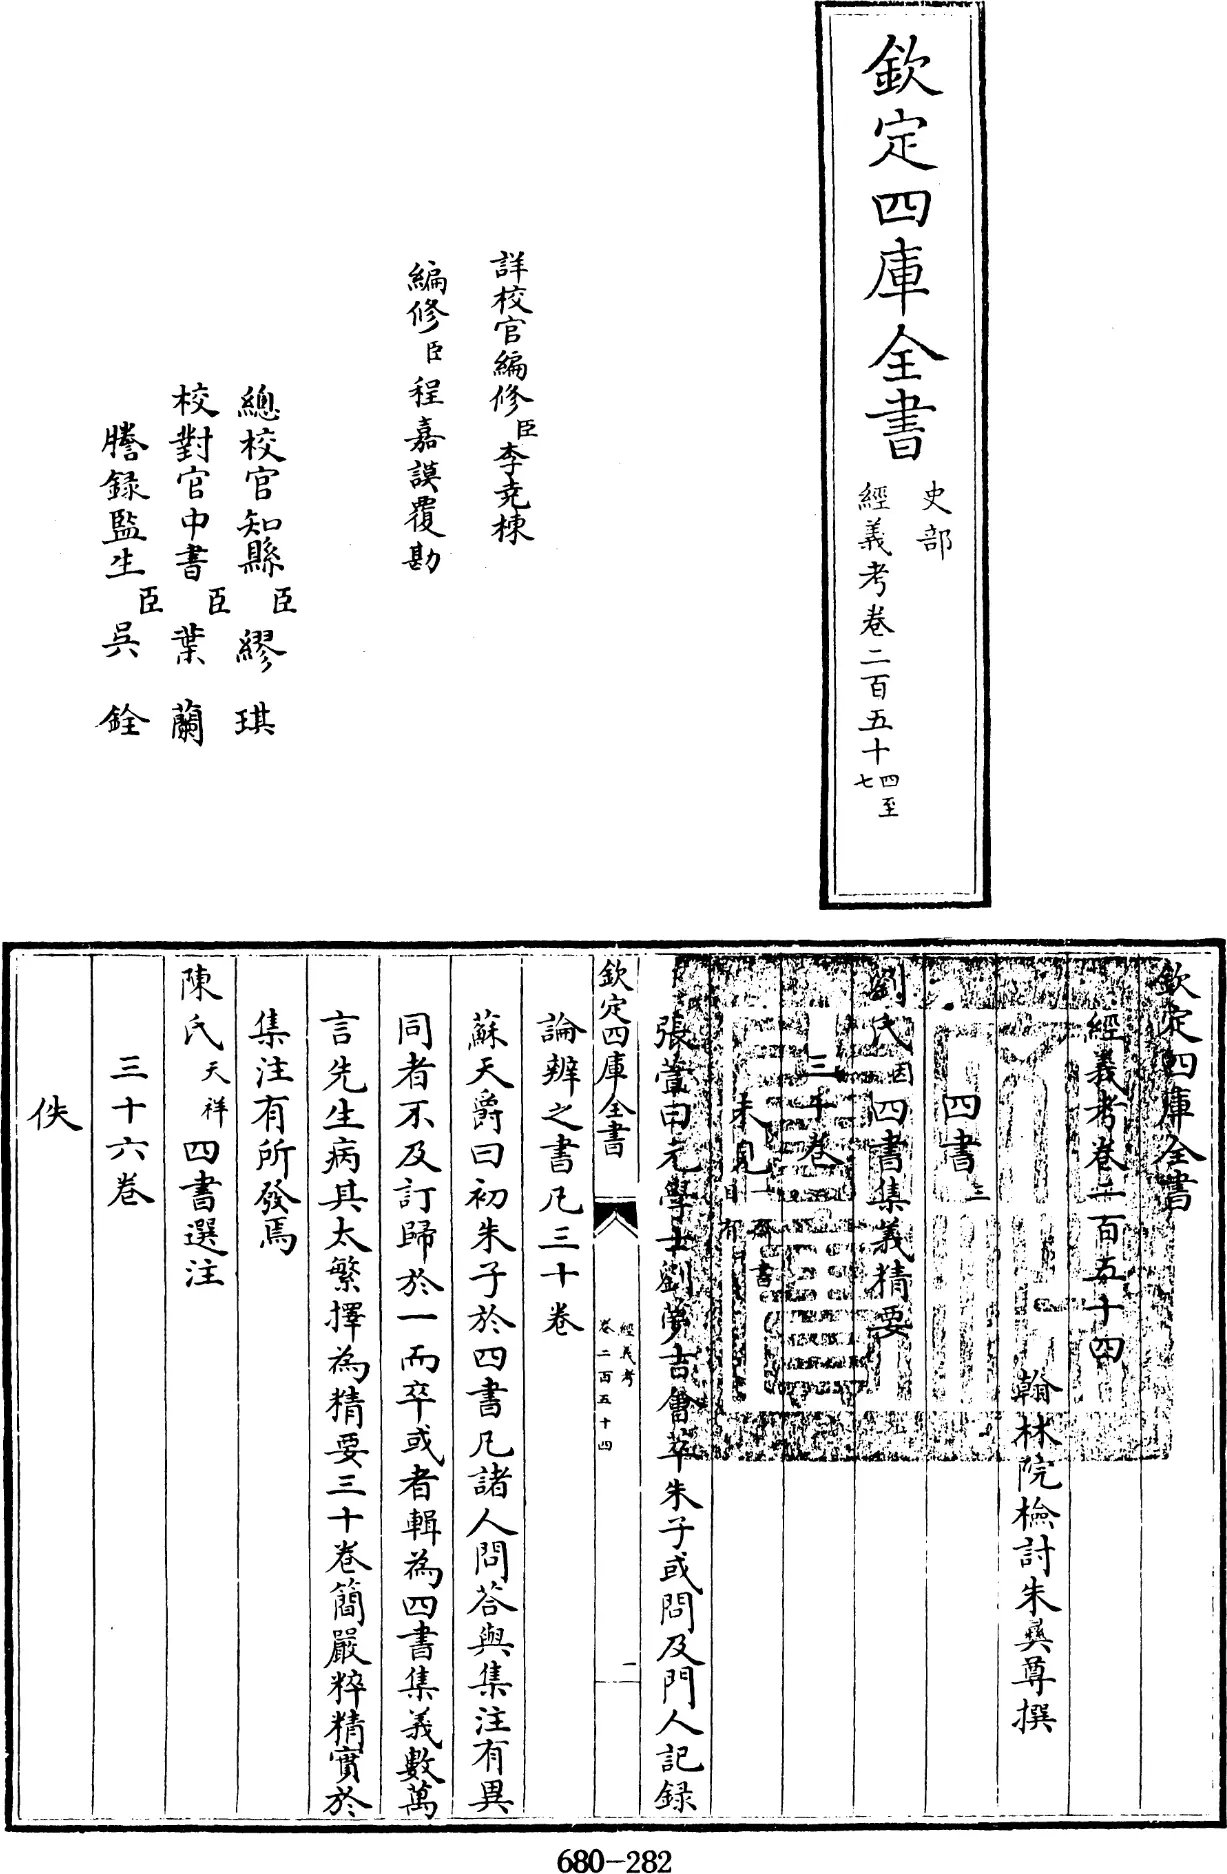 欽定四庫全書
史部
經義考卷二百五十四至
七
詳校官編修臣李堯棟
編修臣程嘉謨覆勘
總校官知縣臣繆琪
校對官中書臣葉蘭
謄録監生臣吳銓
欽定四庫全書
經義考卷二百五十四
翰林院檢討朱彞尊撰
四書三
劉氏因四書集義精要
三十卷
未見一齋書目有
張萱曰元學士劉夢吉會萃朱子或問及門人記録
欽定四庫全書
經義考
卷二百五十四
一
論辨之書凡三十卷
蘇天爵曰初朱子於四書凡諸人問答與集注有異
同者不及訂歸於一而卒或者輯為四書集義數萬
言先生病其太繁擇為精要三十卷簡嚴粹精實於
集注有所發焉
陳氏天祥四書選注
三十六卷
佚
680-282